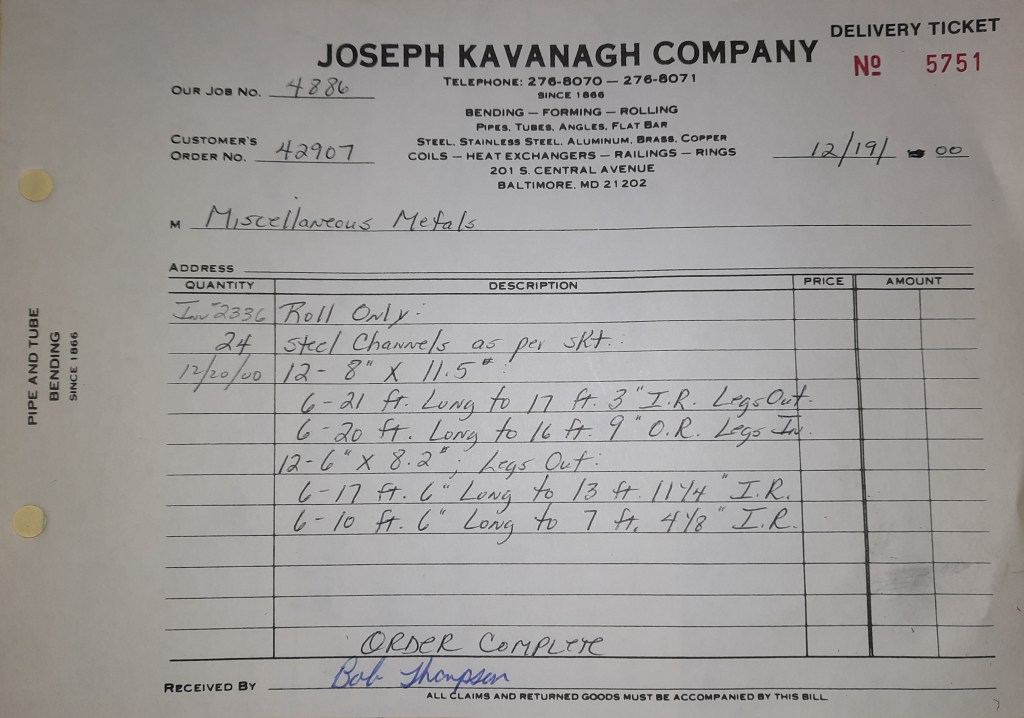 DELIVERY TICKET
JOSEPH KAVANAGH COMPANY
Nº 5751
TELEPHONE: 276-8070 — 276-8071
SINCE 1866
OUR JOB NO. 4886
BENDING — FORMING — ROLLING
PIPES, TUBES, ANGLES, FLAT BAR
CUSTOMER'S
ORDER NO. 42907
STEEL, STAINLESS STEEL, ALUMINUM, BRASS, COPPER
COILS — HEAT EXCHANGERS — RAILINGS — RINGS
12/19/ 00
201 S. CENTRAL AVENUE
BALTIMORE, MD 21202
M Miscellaneous Metals
ADDRESS
QUANTITY DESCRIPTION PRICE AMOUNT
Inv#2336 Roll Only:
24 Steel Channels as per skt.:
12/20/00 12- 8" X 11.5#:
6-21 ft. Long to 17 ft. 3" I.R. Legs Out.
6-20 ft. Long to 16 ft. 9" O.R. Legs In.
12-6" X 8.2#; Legs Out:
6-17 ft. 6" Long to 13 ft. 11 1/4" I.R.
6-10 ft. 6" Long to 7 ft. 4 1/8" I.R.
ORDER COMPLETE
RECEIVED BY Bob Thompson
ALL CLAIMS AND RETURNED GOODS MUST BE ACCOMPANIED BY THIS BILL
PIPE AND TUBE
BENDING
SINCE 1866